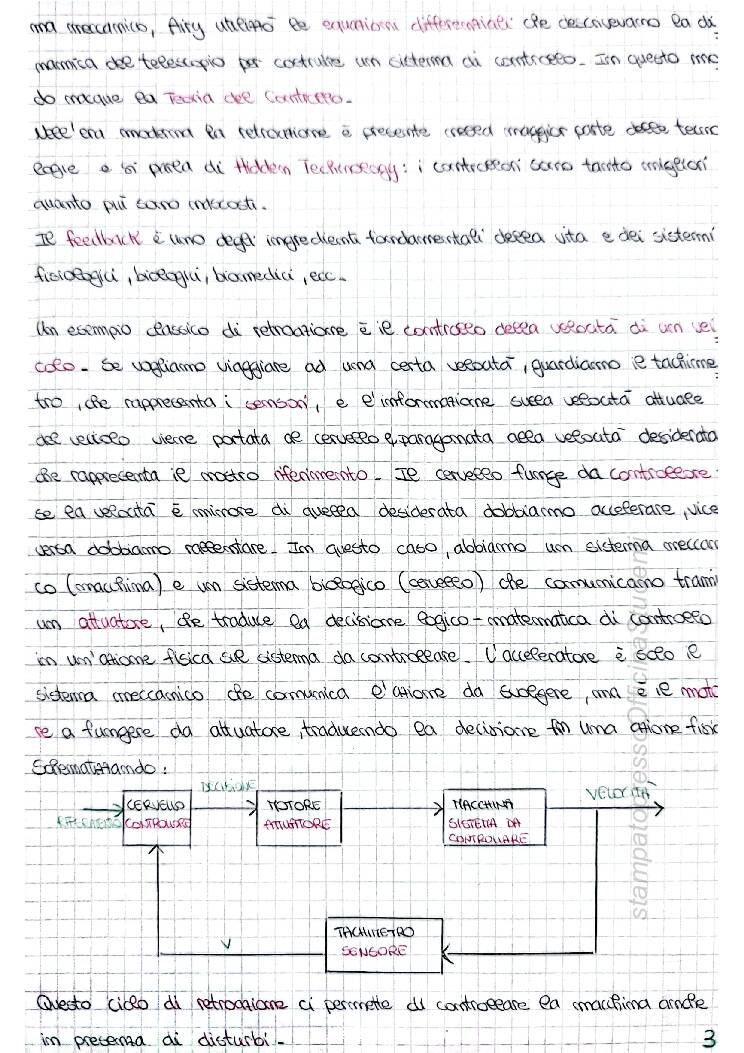 ma meccanico, Airy utilizzò le equazioni differenziali che descrivevano la di
namica del telescopio per costruire un sistema di controllo. In questo mo
do nacque la Teoria del Controllo.
Nell'era moderna la retroazione è presente nella maggior parte delle tecno
logie e si parla di Hidden Technology: i controllori sono tanto migliori
quanto più sono nascosti.
Il feedback è uno degli ingredienti fondamentali della vita e dei sistemi
fisiologici, biologici, biomedici, ecc.
Un esempio classico di retroazione è il controllo della velocità di un vei
colo. Se vogliamo viaggiare ad una certa velocità, guardiamo il tachime
tro, che rappresenta i sensori, e l'informazione sulla velocità attuale
del veicolo viene portata al cervello e paragonata alla velocità desiderata
che rappresenta il nostro riferimento. Il cervello funge da controllore:
se la velocità è minore di quella desiderata dobbiamo accelerare, vice
versa dobbiamo rallentare. In questo caso, abbiamo un sistema meccani
co (macchina) e un sistema biologico (cervello) che comunicano trami
un attuatore, che traduce la decisione logico-matematica di controllo
in un'azione fisica sul sistema da controllare. L'acceleratore è solo il
sistema meccanico che comunica l'azione da svolgere, ma è il moto
re a fungere da attuatore, traducendo la decisione in una azione fisic
Schematizzando:
DECISIONE
VELOCITÀ
RIFERIMENTO
CERVELLO
CONTROLLORE
MOTORE
ATTUATORE
MACCHINA
SISTEMA DA
CONTROLLARE
TACHIMETRO
SENSORE
V
Questo ciclo di retroazione ci permette di controllare la macchina anche
in presenza di disturbi.
3
stampatopressoOfficinaStudenti